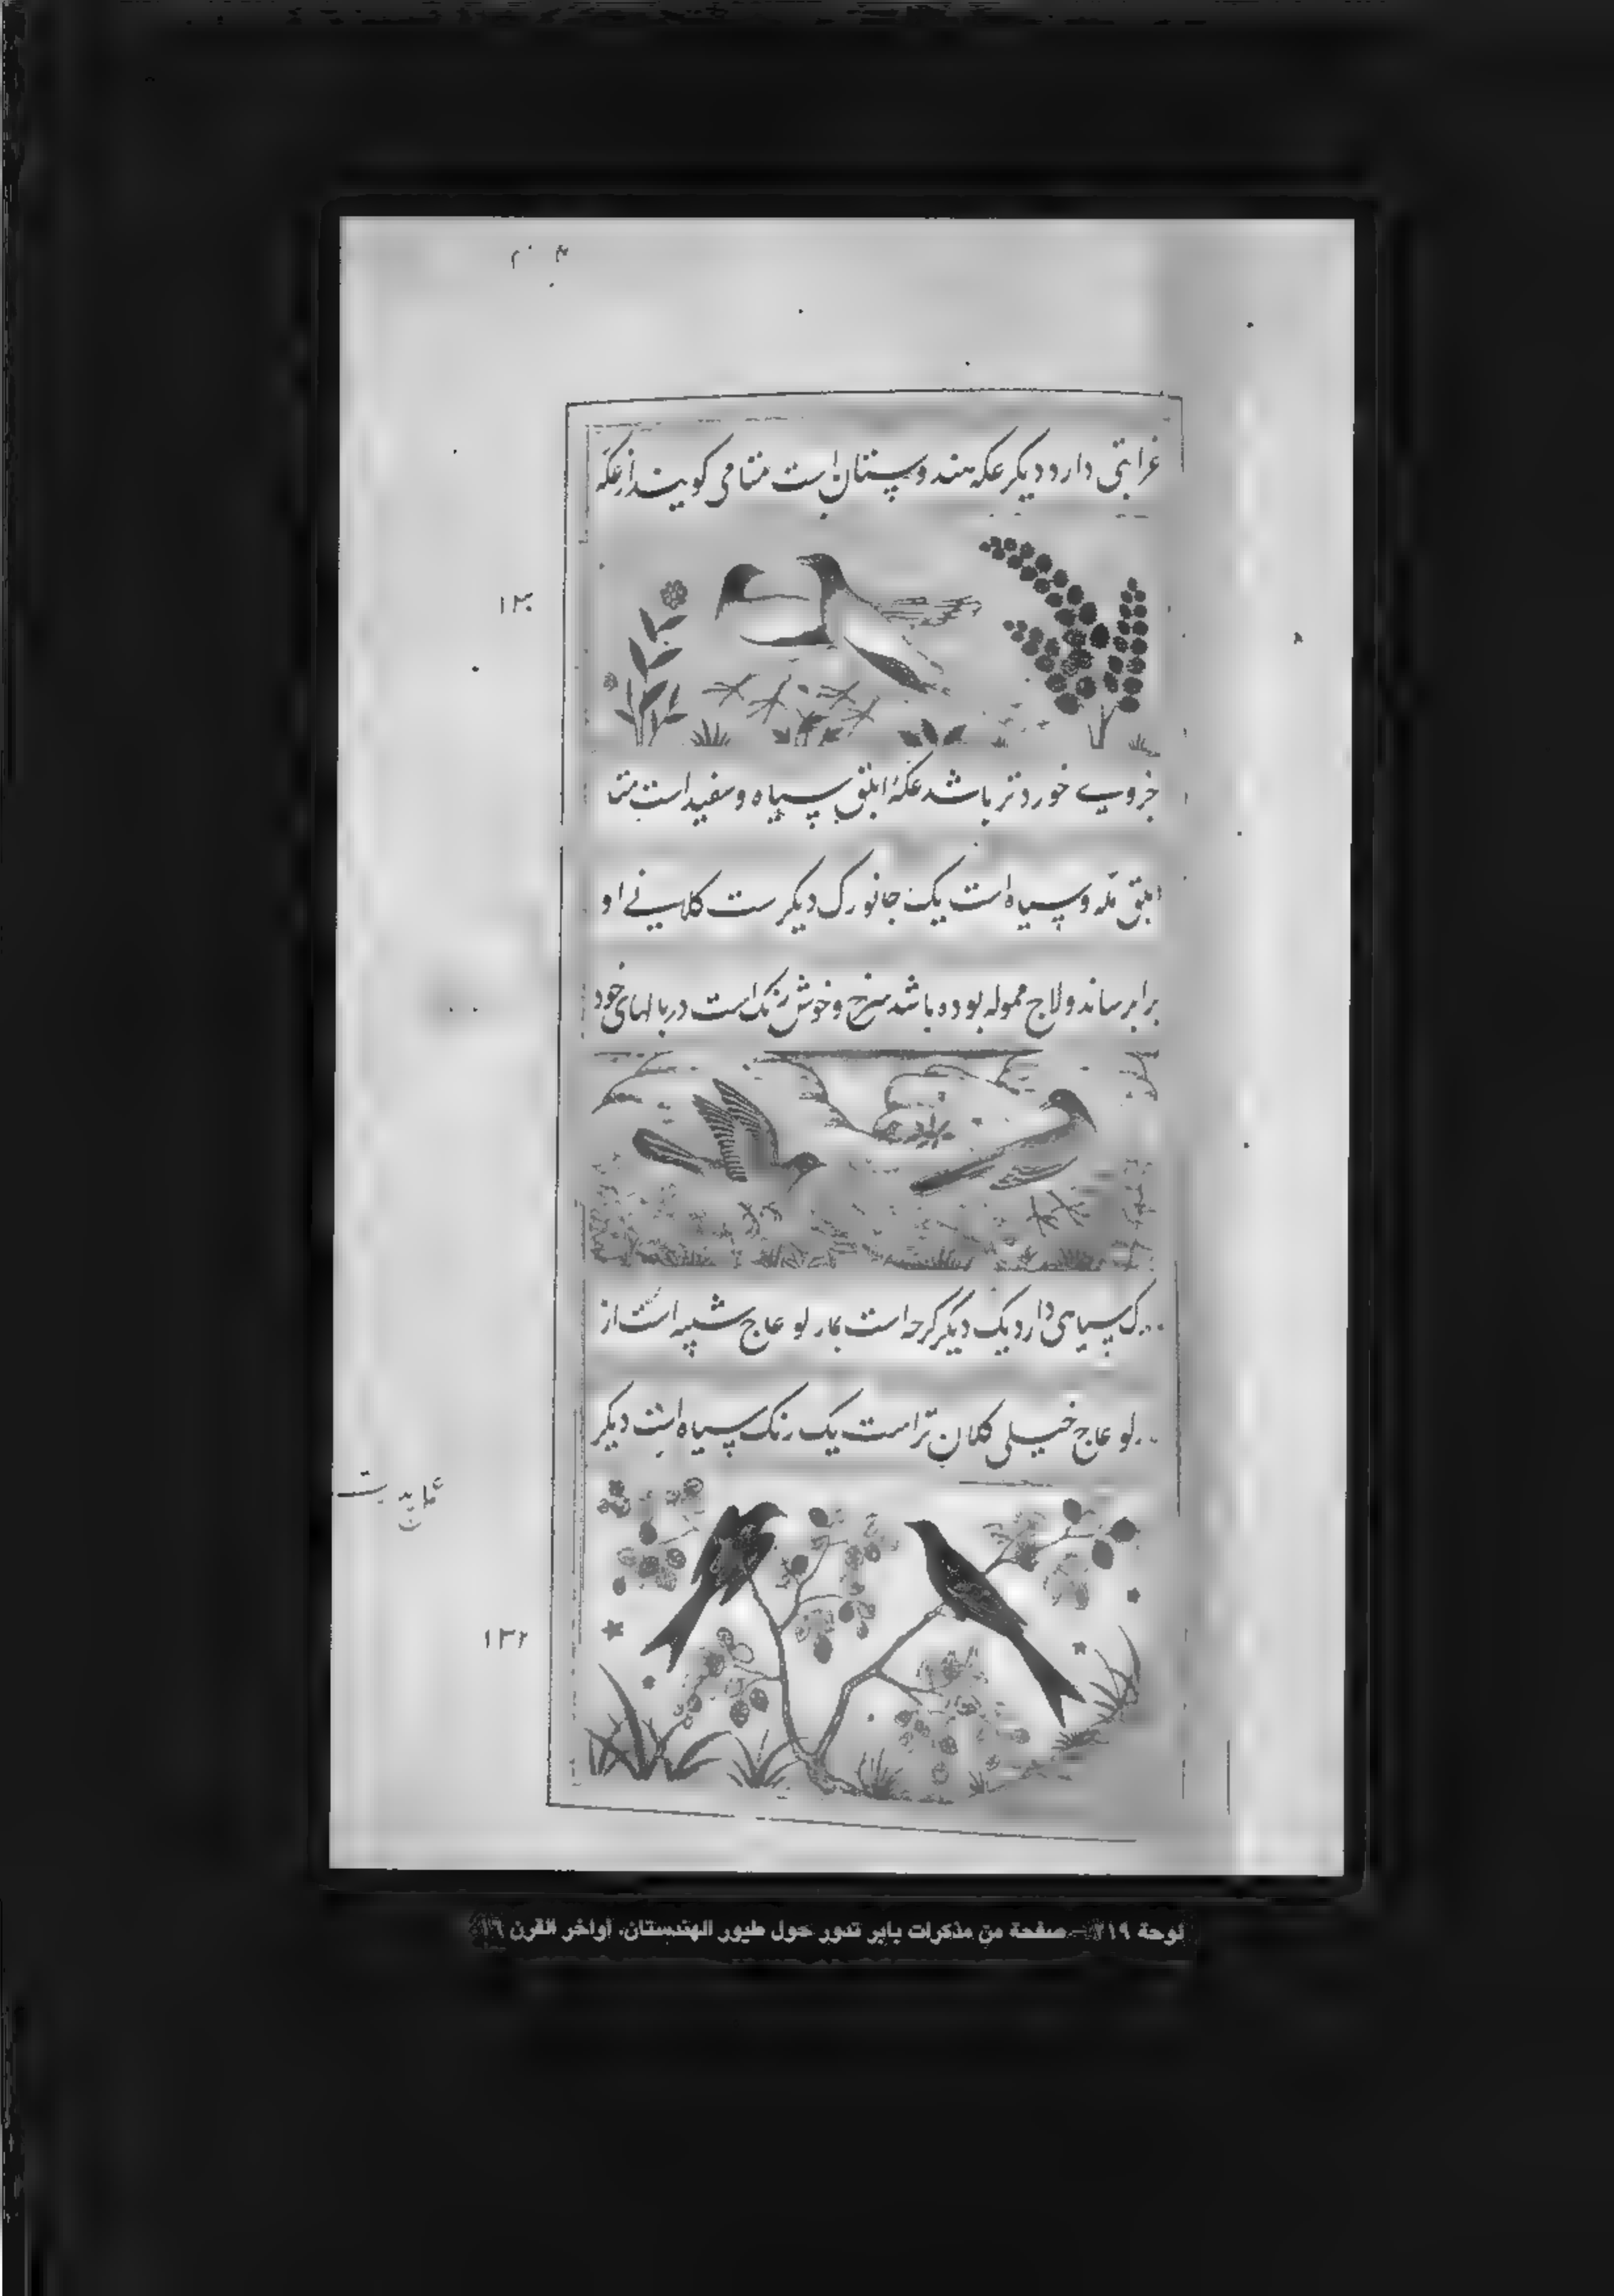 غرابتی دارد دیکر عکه هندوستان است متا می کویند از عکه
جزوی خوردتر باشد عکهٔ ابلق سیاه و سفید است متا
ابلق مله و سیاه است یک جانورک دیکر ست کلانی او
برابر ساندولاج ممولہ بوده باشد سرخ و خوش رنک است در بالهای خود
سیاهی دارد یک دیکر کرجه است
خیلی کلان تر است یک رنک سیاه است دیکر
١٣٢
لوحة ٢١٩ - صفحة من مذكرات بابر تدور حول طيور الهندستان. أواخر القرن ١٦